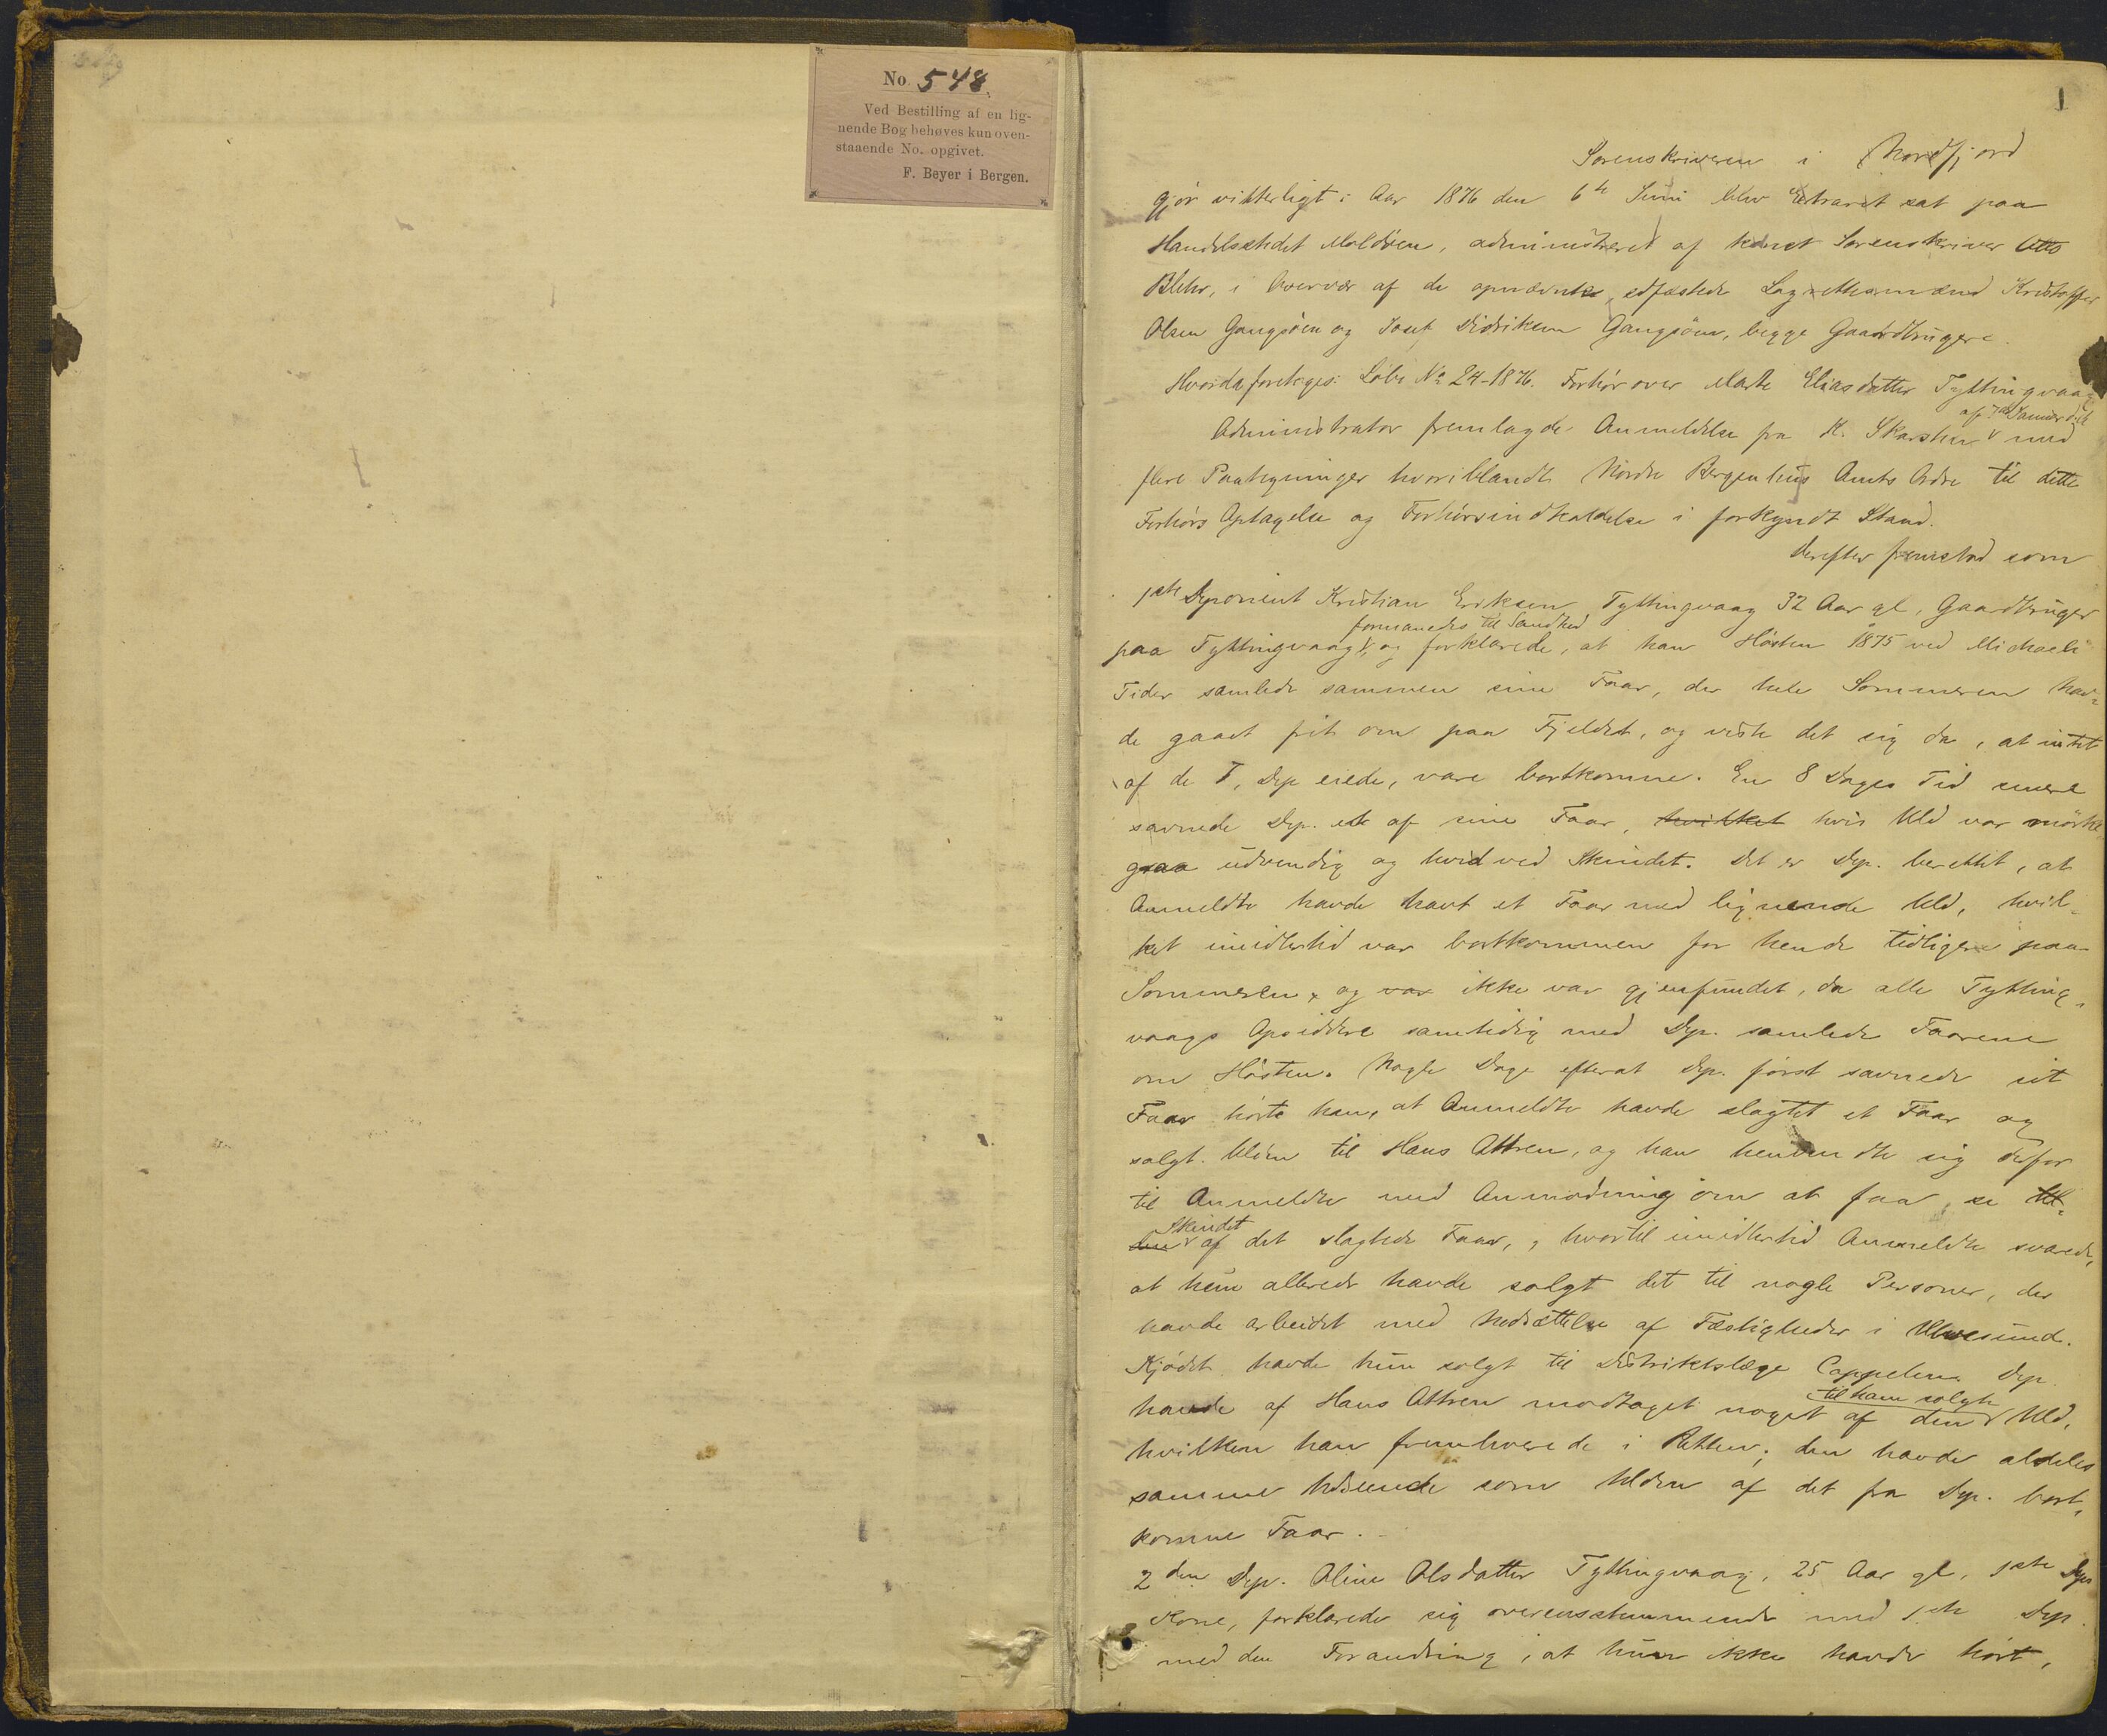 No. 548.
Ved Bestilling af en lig-
nende Bog behøves kun oven-
staaende No. opgivet.
F. Beyer i Bergen.
1
Sorenskriveren i Nordfjord
gjör vitterligt: Aar 1876 den 6te Juni blev Extraret sat paa
Handelsstedet Moldöen, administreret af const Sorenskriver Otto
Blehr, i Overvær af de opnævnte, edfæstede Lagrettesmænd Kristoffer
Olsen Gangsöen og Josef Didriksen Gangsöen, begge Gaardbrugere.
Hvorda foretoges: Löbe No 24-1876. Forhör over Marte Eliasdatter Tyttingvaag
af 7de Januar d.A.
Administrator fremlagde Anmeldelse fra K. Skarsten v med
flere Paategninger hvoriblandt Nordre Bergenhus Amts Ordre til dette
Forhörs Optagelse og Forhörsindkaldelse i forkyndt Stand.
Derefter fremstod som
1ste Deponent Kristian Eriksen Tyttingvaag 32 Aar gl, Gaardbruger
formanedes til Sandhed
paa Tyttingvaag v, og forklarede, at han Hösten 1875 ved Michaeli
Tider samlede sammen sine Faar, der hele Sommeren hav-
de gaaet frit om paa Fjeldet, og viste det sig da, at intet
af de 7, Dep eiede, vare bortkomne. En 8 Dages Tid senere
savnede Dep. et af sine Faar, hvilket hvis Uld var mörke
graa udvendig og hvid ved Skindet. Det er Dep. berettet, at
Anmeldte havde havt et Faar med lignende Uld, hvil-
ket imidlertid var bortkommen for hende tidligere paa
Sommeren, og var ikke var gjenfundet, da alle Tytting-
vaags Opsiddere samtidig med Dep. samlede Faarene
om Hösten. Nogle Dage efterat Dep. först savnede sit
Faar hörte han, at Anmeldte havde slagtet et Faar og
solgt Ulden til Hans Attren, og han henvendte sig derfor
til Anmeldte med Anmodning om at faa se Ul-
Skindet
den v af det slagtede Faar, hvortil imidlertid Anmeldte svarede,
at hun allerede havde solgt det til nogle Personer, der
havde arbeidet med Nedsættelse af Fæstigheder i Ulvesund.
Kjödet havde hun solgt til Distriktslæge Cappelen. Dep
til ham solgte
havde af Hans Attren modtaget noget af den v Uld,
hvilken han fremleverede i Retten; den havde aldeles
samme Udseende som Ulden af det fra Dep. bort-
komne Faar.
2den Dep. Oline Olsdatter Tyttingvaag, 25 Aar gl, 1ste Dep
Kone, forklarede sig overensstemmende med 1ste Dep.
med den Forandring, at hun ikke havde hört,